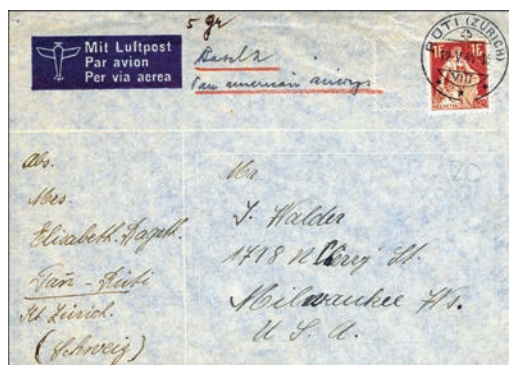 5 gr
Mit Luftpost
Par avion
Per via aerea
Basel 2
Pan american airways
RÜTI (ZÜRICH)
HELVETIA
Abs.
Mes.
Elisabeth
Tann - Rüti
Kt. Zürich.
(Schweiz)
Mr
J. Walder
1718 N St.
Milwaukee Ws.
U. S. A.